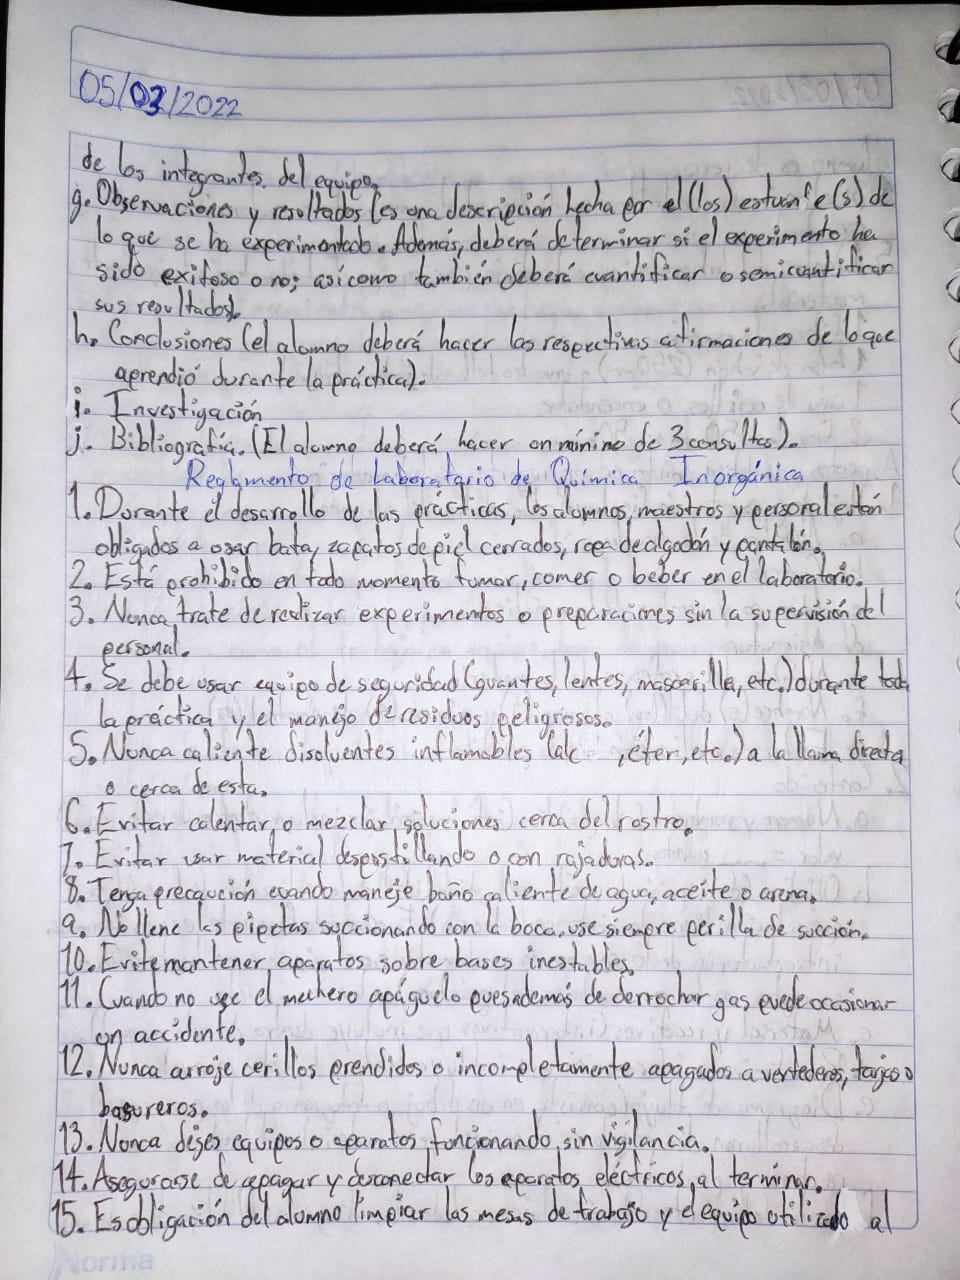 05/03/2022
de los integrantes del equipo.
g. Observaciones y resultados (es una descripción hecha por el (los) (s) de
lo que se ha experimentado. Además, deberá determinar si el experimento ha
sido exitoso o no; así como también deberá cuantificar o semicuantificar
sus resultados).
h. Conclusiones (el alumno deberá hacer las respectivas afirmaciones de lo que
aprendió durante la práctica).
i. Investigación
j. Bibliografía. (El alumno deberá hacer un mínino de 3 consultas).
Reglamento de Laboratorio de Química Inorgánica
1. Durante el desarrollo de las prácticas, los alumnos, maestros y personal están
obligados a usar bata, zapatos de piel cerrados, ropa de algodón y pantalón.
2. Está prohibido en todo momento fumar, comer o beber en el laboratorio.
3. Nunca trate de realizar experimentos o preparaciones sin la supervisión del
personal.
4. Se debe usar equipo de seguridad (guantes, lentes, mascarilla, etc.) durante toda
la práctica y el manejo de residuos peligrosos.
5. Nunca caliente disolventes inflamables (alc , éter, etc.) a la llama directa
o cerca de esta.
6. Evitar calentar o mezclar soluciones cerca del rostro.
7. Evitar usar material despostillando o con rajaduras.
8. Tenga precaución cuando maneje baño caliente de agua, aceite o arena.
9. No llene las pipetas succionando con la boca, use siempre perilla de succión.
10. Evite mantener aparatos sobre bases inestables.
11. Cuando no use el mechero apáguelo pues además de derrochar gas puede ocasionar
un accidente.
12. Nunca arroje cerillos prendidos o incompletamente apagados a vertederos, tarjas o
basureros.
13. Nunca deje equipos o aparatos funcionando sin vigilancia.
14. Asegurarse de apagar y desconectar los aparatos eléctricos al terminar.
15. Es obligación del alumno limpiar las mesas de trabajo y el equipo utilizado al
Norma